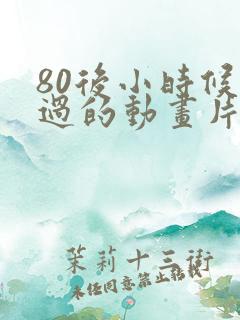 80後小時候
過的動畫片
茉莉十三街
未经同意禁止转载